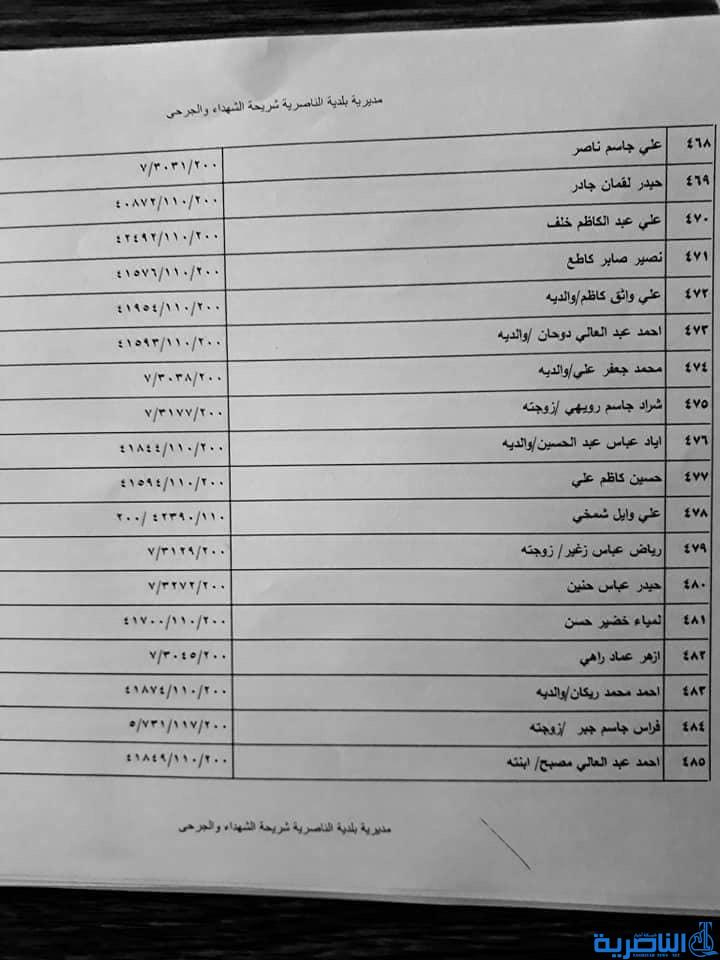 مديرية بلدية الناصرية شريحة الشهداء والجرحى
٤٦٨ علي جاسم ناصر ٧/٣٠٣١/٢٠٠
٤٦٩ حيدر لقمان جادر ٤٠٨٧٢/١١٠/٢٠٠
٤٧٠ علي عبد الكاظم خلف ٤٢٤٩٢/١١٠/٢٠٠
٤٧١ نصير صابر كاطع ٤١٥٧٦/١١٠/٢٠٠
٤٧٢ علي واثق كاظم/والديه ٤١٩٥٤/١١٠/٢٠٠
٤٧٣ احمد عبد العالي دوحان /والديه ٤١٥٩٣/١١٠/٢٠٠
٤٧٤ محمد جعفر علي/والديه ٧/٣٠٣٨/٢٠٠
٤٧٥ شراد جاسم رويهي /زوجته ٧/٣١٧٧/٢٠٠
٤٧٦ اياد عباس عبد الحسين/والديه ٤١٨٤٤/١١٠/٢٠٠
٤٧٧ حسين كاظم علي ٤١٥٩٤/١١٠/٢٠٠
٤٧٨ علي وايل شمخي ٤٢٣٩٠/١١٠ /٢٠٠
٤٧٩ رياض عباس زغير/ زوجته ٧/٣١٢٩/٢٠٠
٤٨٠ حيدر عباس حنين ٧/٣٢٧٢/٢٠٠
٤٨١ لمياء خضير حسن ٤١٧٠٠/١١٠/٢٠٠
٤٨٢ ازهر عماد راهي ٧/٣٠٤٥/٢٠٠
٤٨٣ احمد محمد ريكان/والديه ٤١٨٧٤/١١٠/٢٠٠
٤٨٤ فراس جاسم جبر /زوجته ٥/٧٣١/١١٧/٢٠٠
٤٨٥ احمد عبد العالي مصبح/ ابنته ٤١٨٤٩/١١٠/٢٠٠
مديرية بلدية الناصرية شريحة الشهداء والجرحى
الناصرية